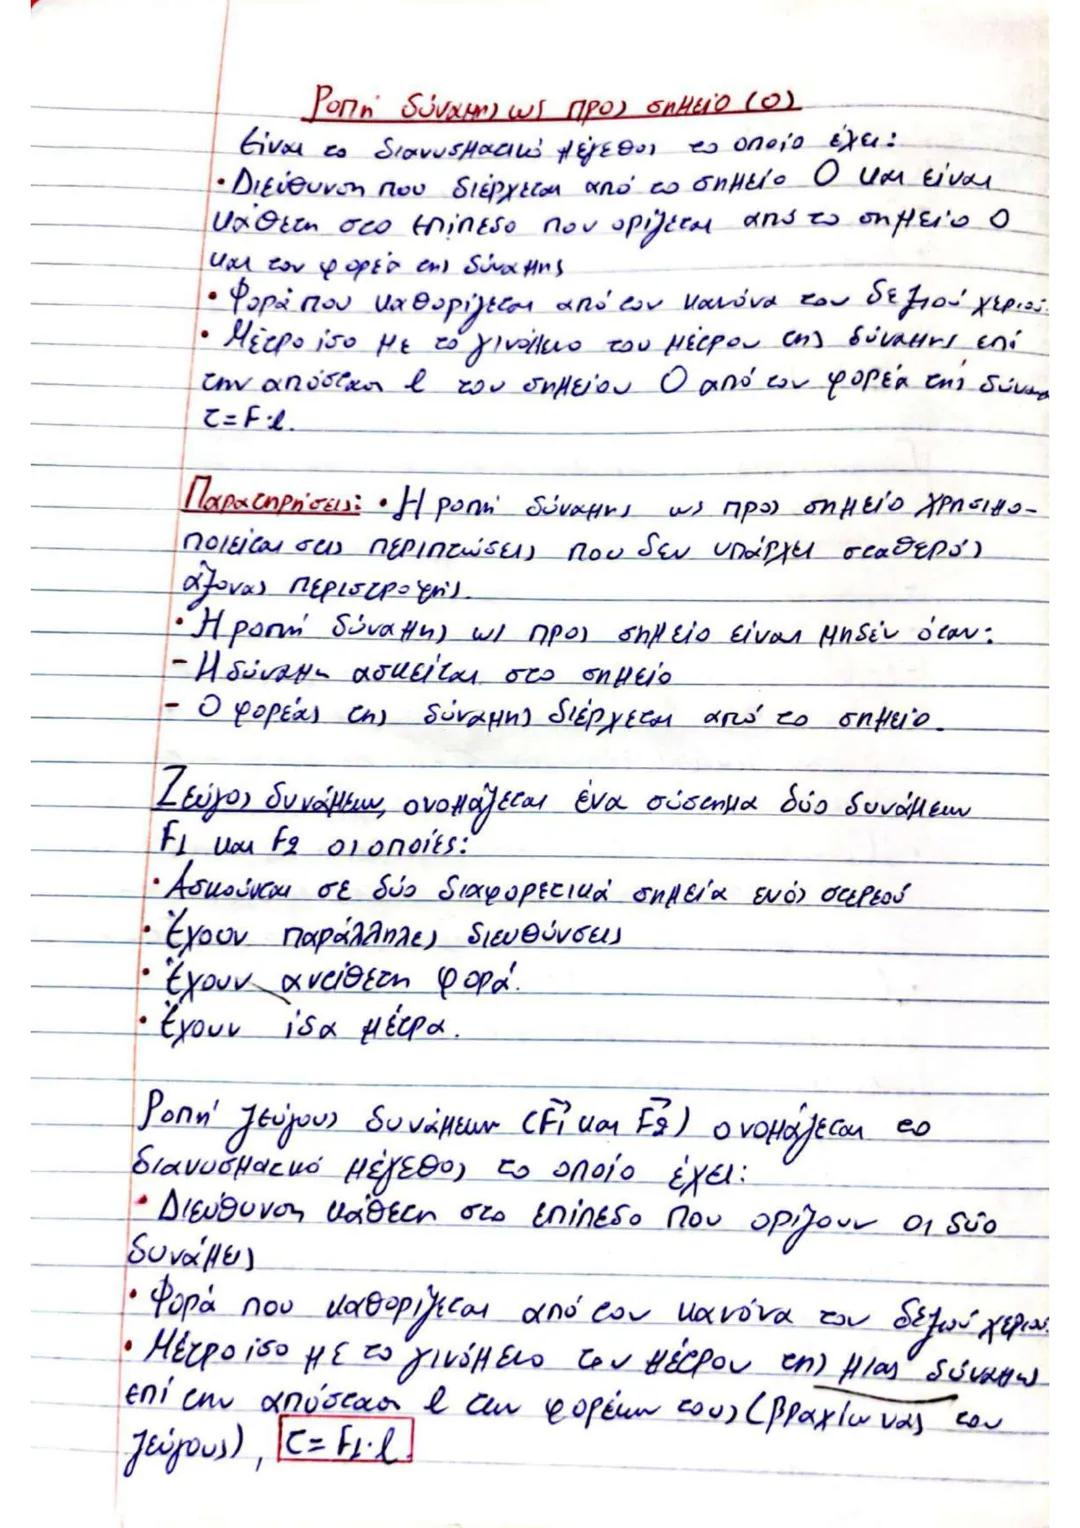 Ροπή δύναμης ως προς σημείο (Ο)
Είναι το διανυσματικό μέγεθος το οποίο έχει:
• Διεύθυνση που διέρχεται από το σημείο Ο και είναι
κάθετη στο επίπεδο που ορίζεται από το σημείο Ο
και τον φορέα της δύναμης
• Φορά που καθορίζεται από τον κανόνα του δεξιού χεριού.
• Μέτρο ίσο με το γινόμενο του μέτρου της δύναμης επί
την απόσταση l του σημείου Ο από τον φορέα της δύναμ
τ=F·l.
Παρατηρήσεις: • Η ροπή δύναμης ως προς σημείο χρησιμο-
ποιείται στις περιπτώσεις που δεν υπάρχει σταθερός
άξονας περιστροφής.
• Η ροπή δύναμης ως προς σημείο είναι μηδέν όταν:
- Η δύναμη ασκείται στο σημείο
- Ο φορέας της δύναμης διέρχεται από το σημείο.
Ζεύγος δυνάμεων, ονομάζεται ένα σύστημα δύο δυνάμεων
F1 και F2 οι οποίες:
• Ασκούνται σε δύο διαφορετικά σημεία ενός στερεού
• Έχουν παράλληλες διευθύνσεις
• Έχουν αντίθετη φορά.
• Έχουν ίσα μέτρα.
Ροπή ζεύγους δυνάμεων (F⃗1 και F⃗2) ονομάζεται το
διανυσματικό μέγεθος το οποίο έχει:
• Διεύθυνση κάθετη στο επίπεδο που ορίζουν οι δύο
δυνάμεις
• Φορά που καθορίζεται από τον κανόνα του δεξιού χεριού.
• Μέτρο ίσο με το γινόμενο του μέτρου της μιας δύναμης
επί την απόσταση l των φορέων τους (βραχίονας του
ζεύγους), τ=F1·l.